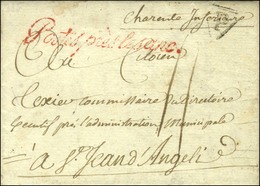 Charente Inférieure
Postes près Légions
Au
Citoien
Texier commissaire du Directoire
Executif près l'administration Municipale
à St Jean d'Angeli